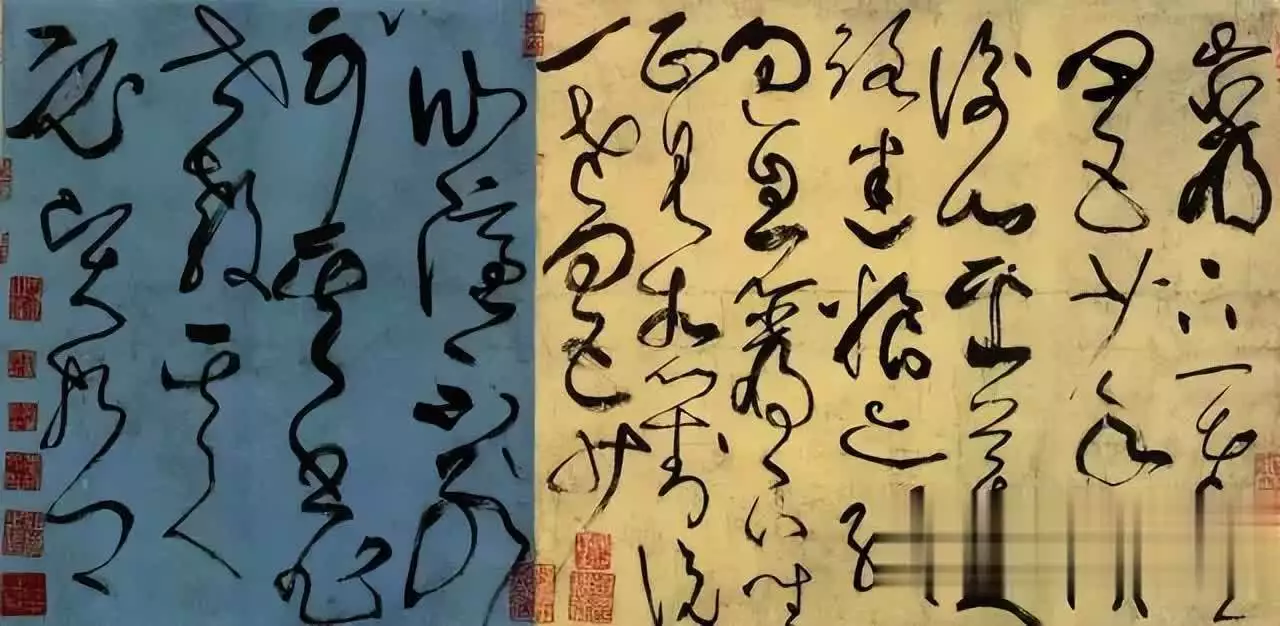 巖下一老
四五少年
衡山採藥
路迷粮亦
過息巖下坐
正見相對說
一老四五少
仙隱不別
可其書非
世教其人
必賢哲